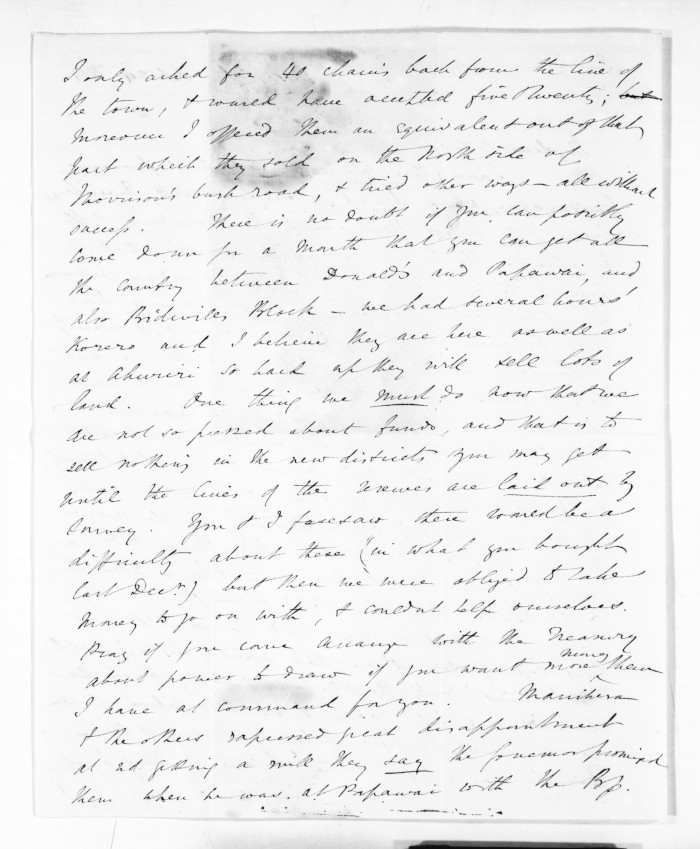 I only asked for 40 chains back from the line of
the town, & would have accepted five & twenty; but
moreover I offered them an equivalent out of that
part which they sold on the North side of
Morrison's bush road, & tried other ways - all without
success. There is no doubt if you can possibly
come down for a month that you can get all
the country between Donald's and Papawai, and
also Bidwills Block - we had several hours'
Korero and I believe they are here as well as
at Ahuriri so hard up they will sell lots of
land. One thing we must do now that we
are not so pressed about funds, and that is to
sell nothing in the new districts you may get
until the lines of the reserves are laid out by
survey. You & I foresaw there would be a
difficulty about these (in what you bought
last Decr.) but then we were obliged to take
money to go on with, & couldn't help ourselves.
Pray if you come arrange with the Treasury
about power to draw if you want more money than
I have at command for you. Manihera
& the others expressed great disappointment
at not getting a mill they say the Governor promised
them when he was at Papawai with the Bp.